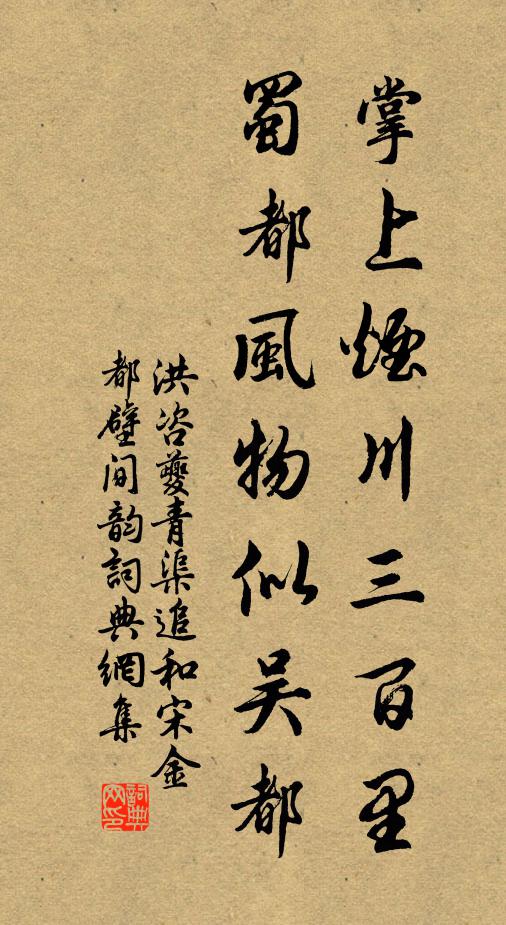 掌上煙川三百里
蜀都風物似吴都
洪咨夔青渠追和宋金
都壁间韵詞典網集
詞典網印